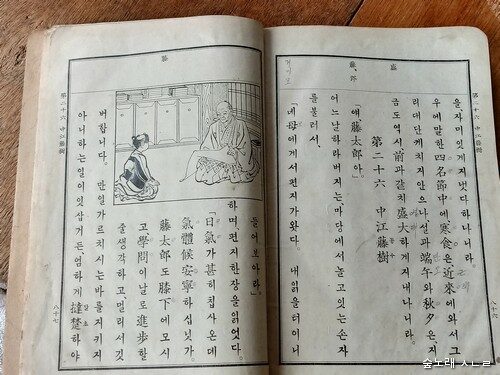 第二十六 中江藤樹
盛
藤、郎
을、자미잇게지냇다하나니라。
우에말한四名節中에、寒食은近來에와서그
리대단케치지안으나、설과端午와秋夕은、지
금도역시前과갓치盛大하게지내나니라。
第二十六 中江藤樹
「얘藤太郎아。」
어느날하라버지는마당에서놀고잇는손자
를불러서、
「네母에게서편지가왓다。내읽을터이니
膝
들어보아라。」
하며、편지한장을읽엇다。
「日氣가甚히칩사온데
氣體候安寧하십닛가。
藤太郎도膝下에모시
고學問이날로進步할
줄생각하고멀리서깃
버합니다。만일가르치시는바를지키지
아니하는일이잇삽거든、엄하게撻楚하야
달초
第二十六 中江藤樹
八十七
숲노래 ㅅㄴㄹ